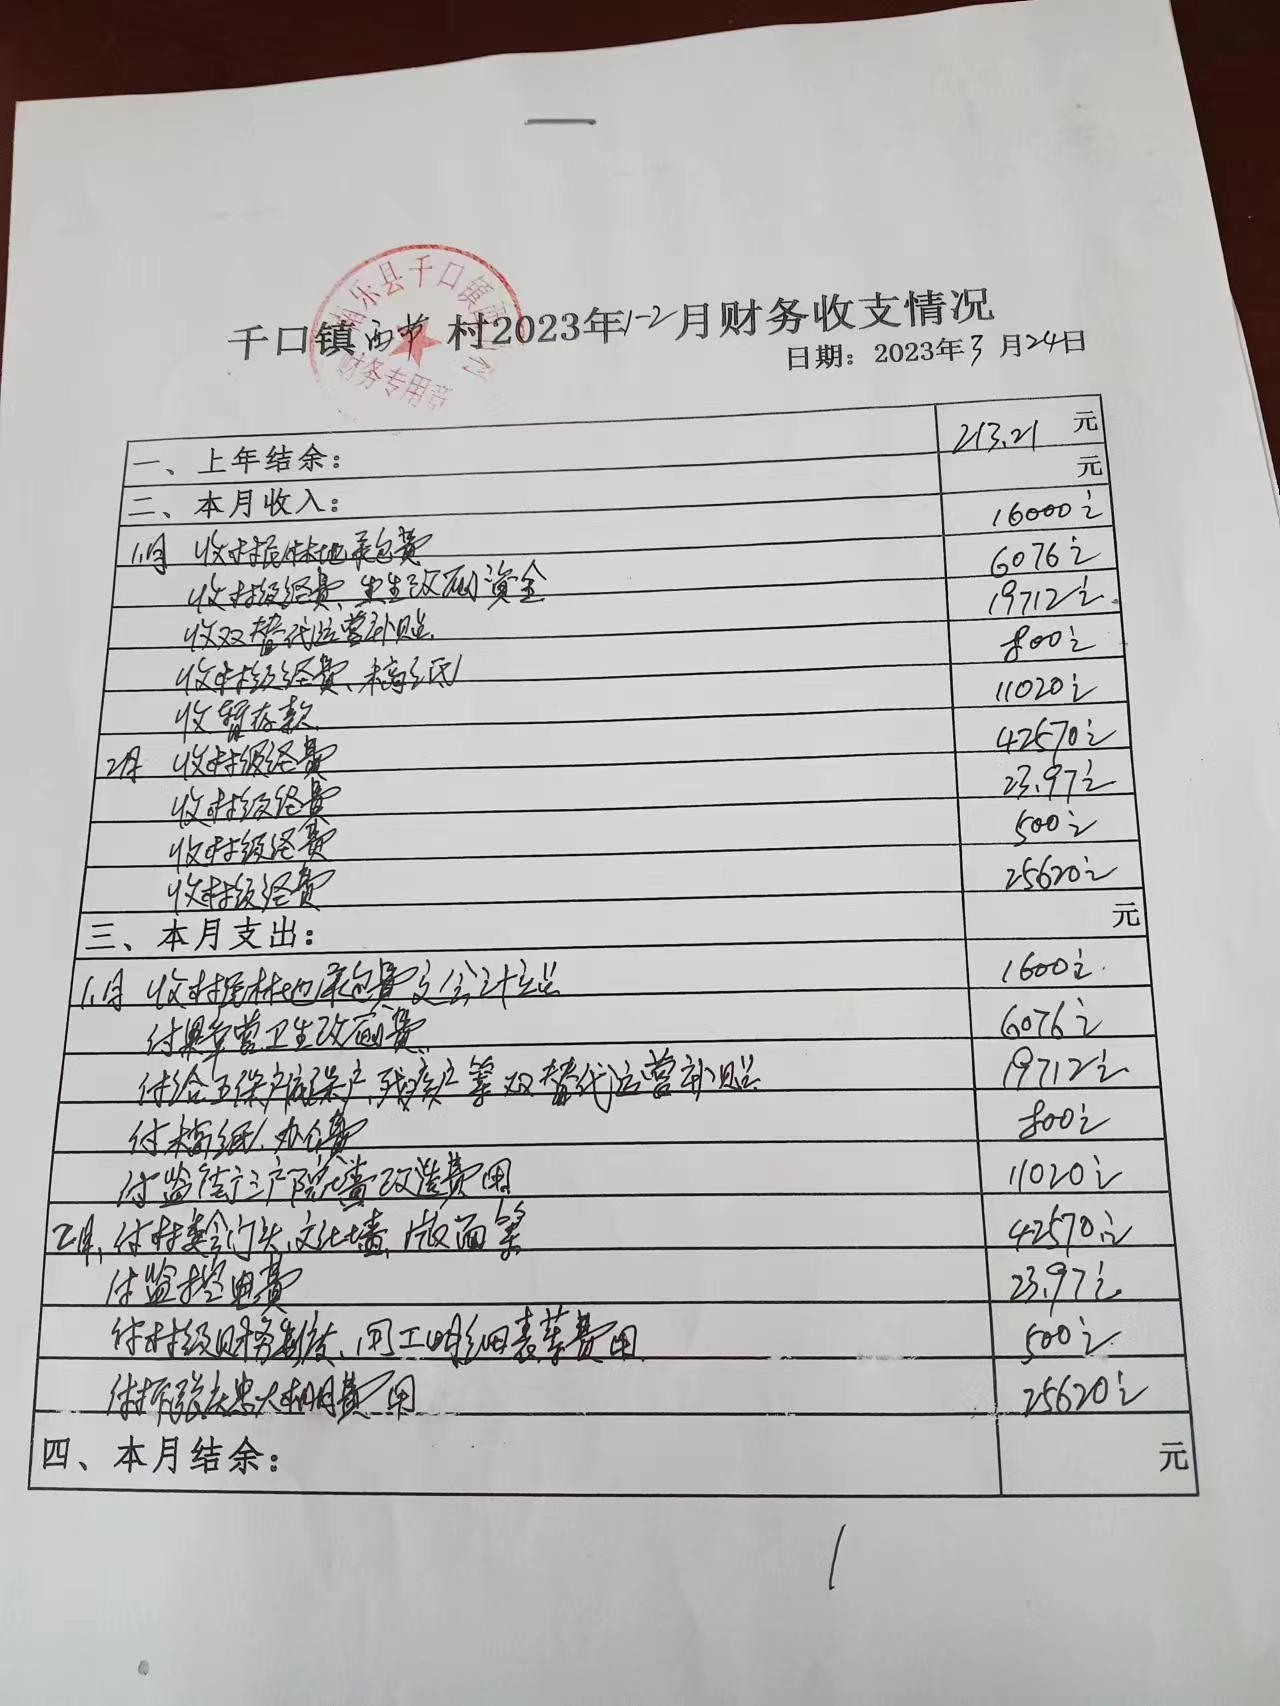 千口镇西节村2023年1-2月财务收支情况
日期：2023年3月24日
乐县千口镇
财务专用章
一、上年结余： 213.21 元
二、本月收入： 元
1月 收村民林地承包费 16000元
收村级经费、卫生改厕资金 6076元
收双替代运营补贴 19712元
收村级经费、稿纸 800元
收暂存款 11020元
2月 收村级经费 42570元
收村级经费 23.97元
收村级经费 500元
收村级经费 25620元
三、本月支出： 元
1月 收村民林地承包费交会计 1600元
付 卫生改厕费 6076元
付给五保户低保户、残疾户等双替代运营补贴 19712元
付稿纸、办公费 800元
付 街 户院墙改造费用 11020元
2月、付村委会门头、文化墙、版面等 42570元
付监控电费 23.97元
付村级财务制度、用工明细表等费用 500元
付 费用 25620元
四、本月结余： 元
1